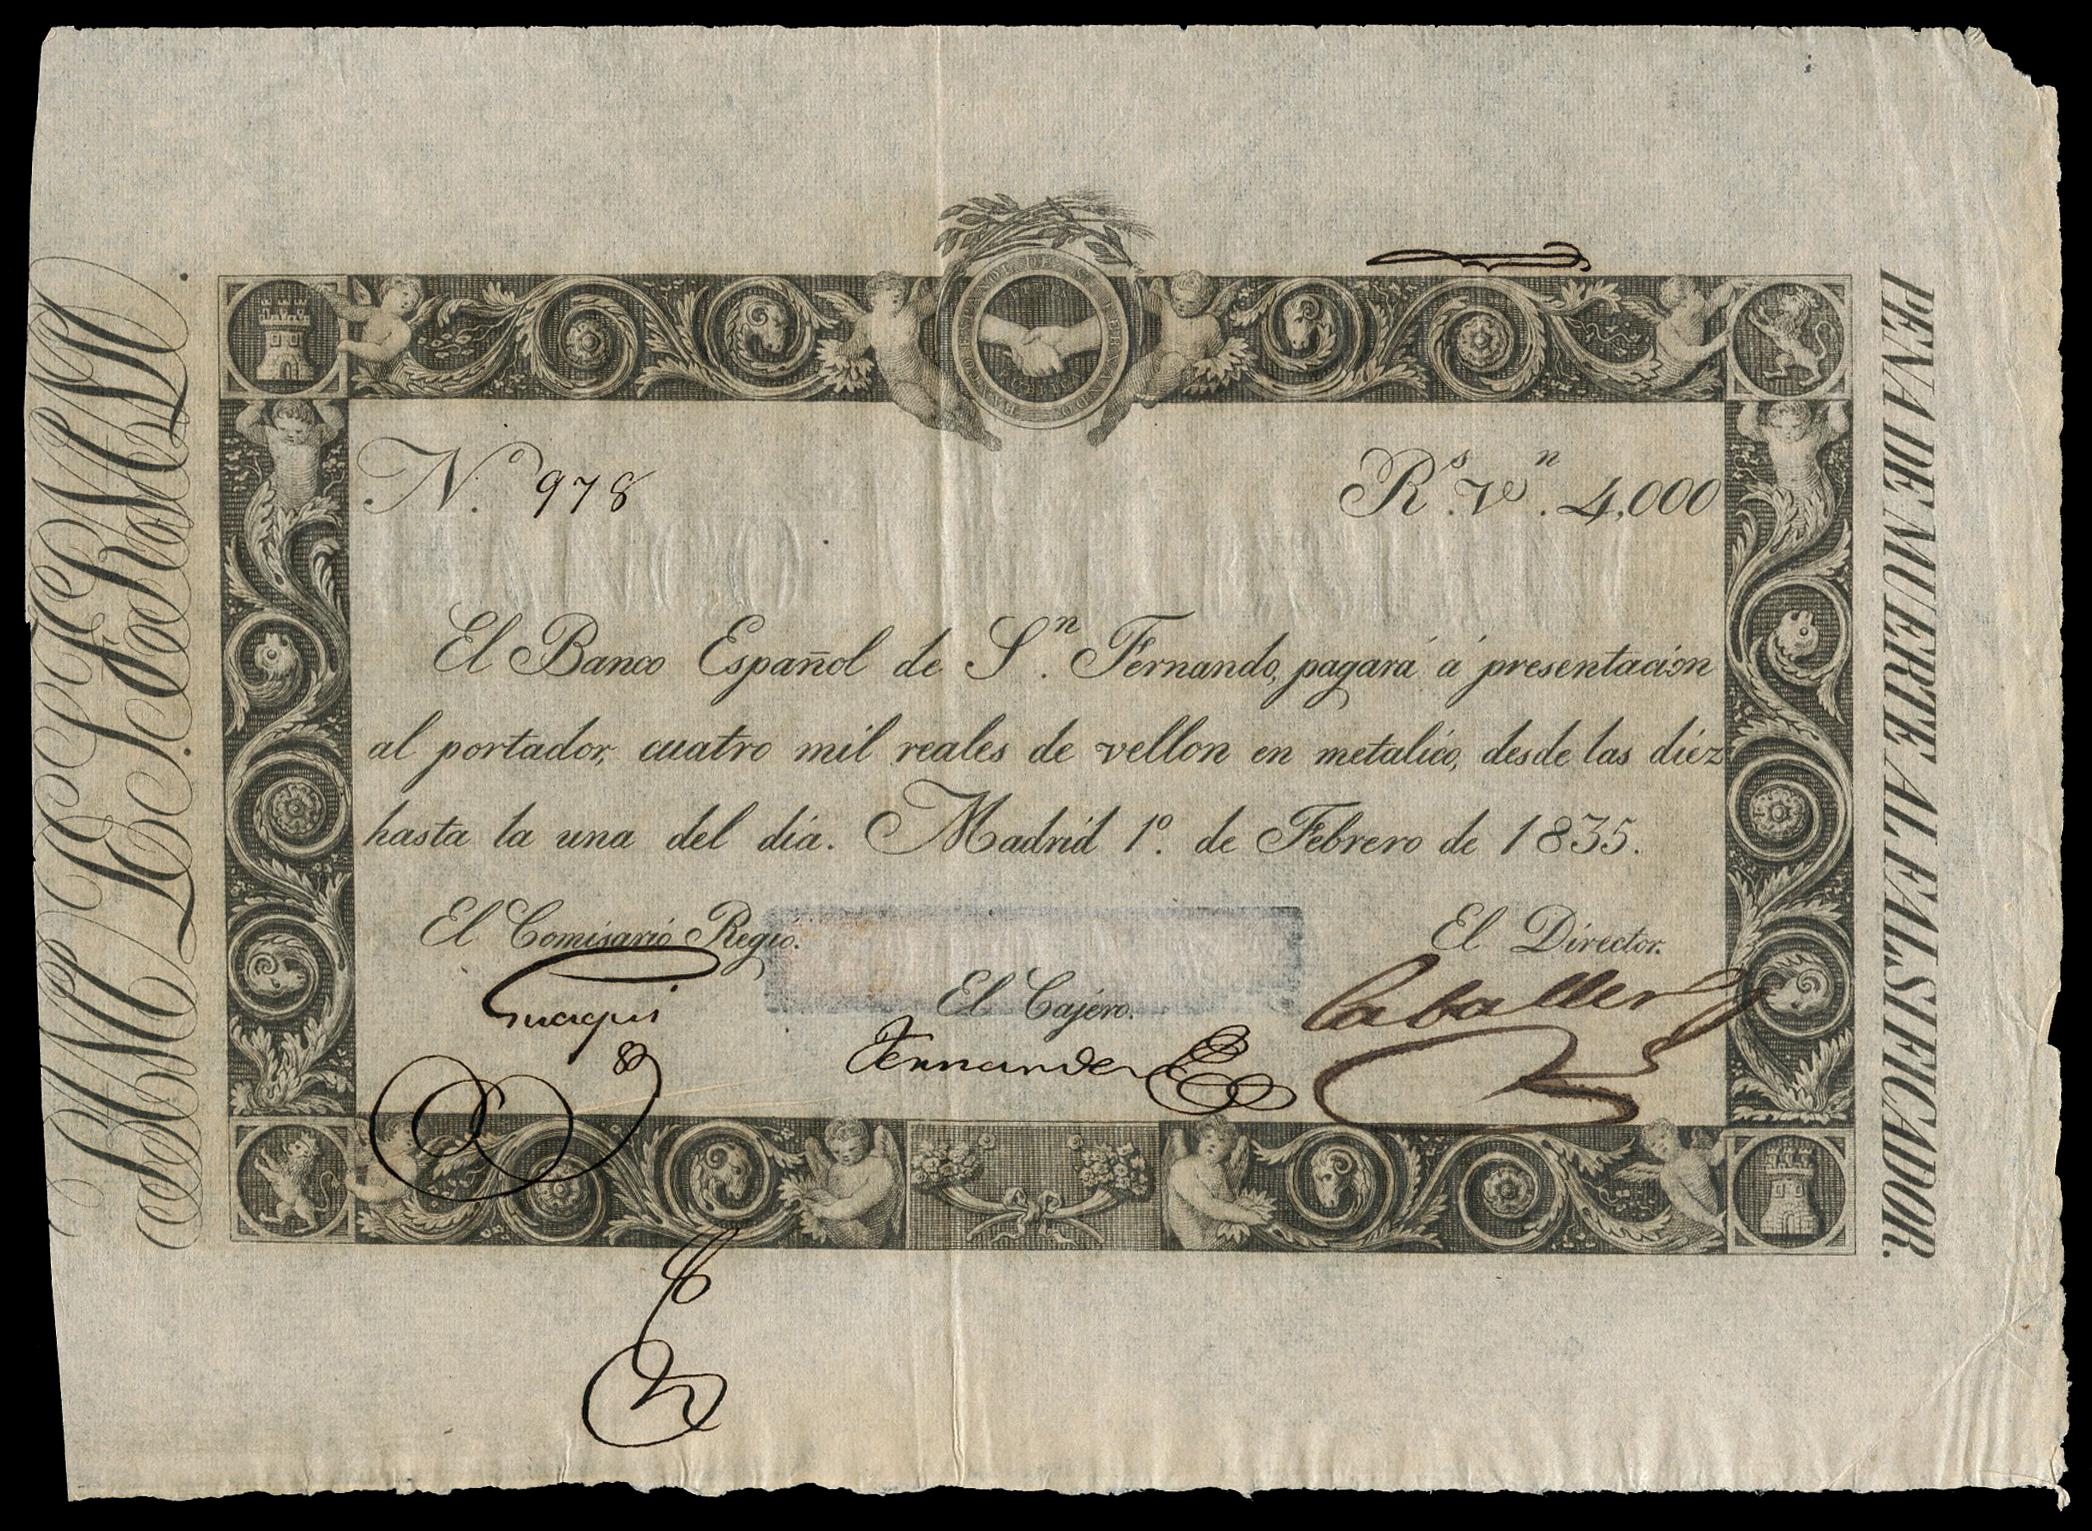 BANCO ESPAÑOL DE S. FERNANDO.
N.º 978
R.s v.n 4,000
El Banco Español de S.n Fernando, pagará á presentación
al portador, cuatro mil reales de vellon en metalico, desde las diéz
hasta la una del dia. Madrid 1º. de Febrero de 1835.
El Comisario Regio.
El Director.
El Cajero.
Guaqui
Caballero
Fernandez
PENA DE MUERTE AL FALSIFICADOR.